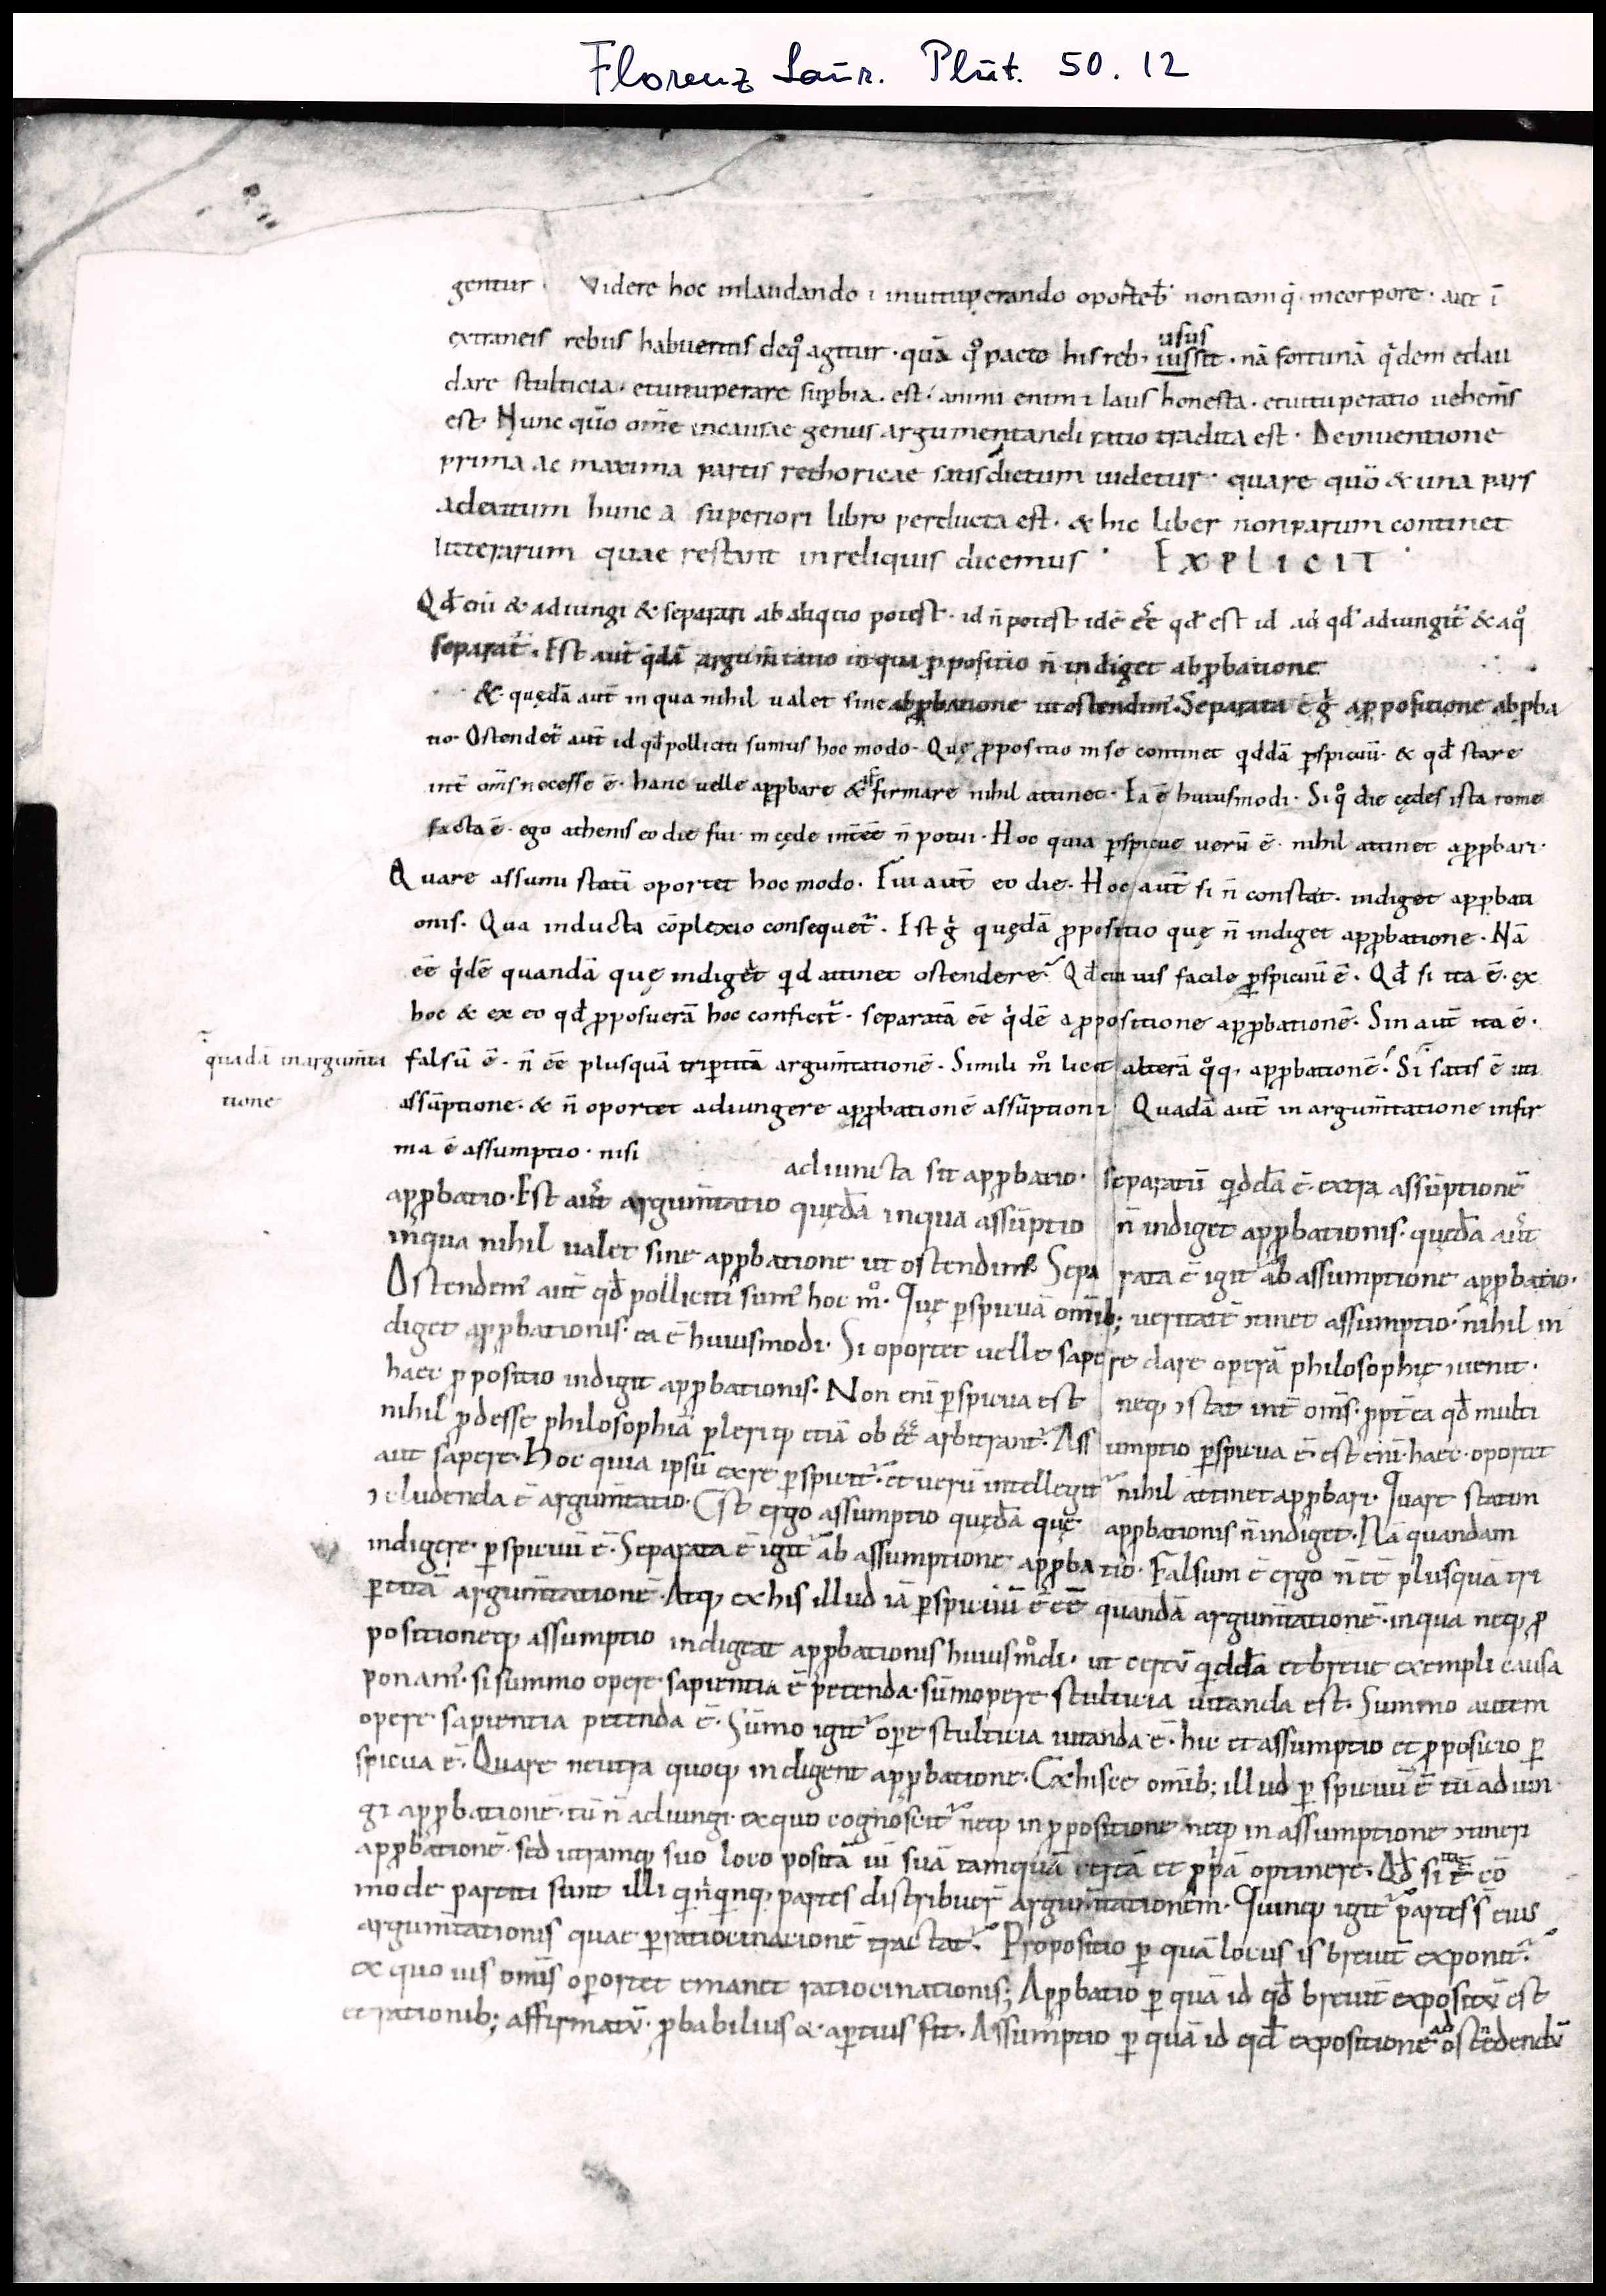 Florenz Laur. Plut. 50.12
gentur. Videre hoc inlaudando ⁊ inuituperando oporteb̄ nontam q̇ incorpore aut ī
extraneis rebus habuerit is deq̊ agitur · quā q̊ pacto his reb;
usus
iussit · nā fortunā q̇dem etlau
dare stulticia · etuituperare suꝑbia · est · animi enim ⁊ laus honesta · etuituperatio uehem̄s
est · Nunc qūo om̄e incausae genus argumentandi ratio tradita est · Deinuentione
prima ac maxima partis rethoricae satis dictum uidetur · quare quō & una pars
adexitum hunc a superiori libro perducta est · & hic liber nonparum continet
litterarum quae restant inreliquis dicemus · EXPLICIT ·
Qd̄ eni & adiungi & separari abaliquo potest · id n̄ potest idē eē qd̄ est id ad qd̄ adiungit̄ & aq̊
separat̄ · Est aut̄ q̇dā argum̄tatio inqua ꝓpositio n̄ indiget abꝓbatione
& · quędā aut̄ in qua nihil ualet sine abꝓbatione utostendim̄ · Separata ē ġ aꝓpositione abꝓba
tio · Ostendet̄ aut̄ id qd̄ polliciti sumus hoc modo · Quę ꝓpositio inse continet qddā ꝑspicuū · & qd̄ stare
int̄ om̄s necesse ē · hanc uelle apꝓbare & firmare nihil attinet · Ea ē huiusmodi · Si q̊ die cędes ista rome
facta ē · ego athenis eo die fui · in cęde int̄eē n̄ potui · Hoc quia ꝑspicue uerū ē · nihil attinet apꝓbari ·
Quare assumi statī oportet hoc modo · Fui aut̄ eo die · Hoc aut̄ si n̄ constat · indiget apꝓbati
onis · Qua inducta cōplexio consequet̄ · Est ġ quędā ꝓpositio quę n̄ indiget apꝓbatione · Nā
eē q̇dē quandā quę indiget qd attinet ostendere · Qd̄ cuiuis facile ꝑspicuū ē · Qd̄ si ita ē · ex
hoc & ex eo qd̄ ꝓposuerā hoc conficit̄ · separatā eē q̇dē aꝓpositione apꝓbationē · Sin aut̄ ita ē ·
quadā inargum̄ta
tione
falsū ē · n̄ eē plusquā triꝑtitā argum̄tationē · Simili m̊ licet alterā q̊q; apꝓbationē · Si satis ē uti
assūptione · & n̄ oportet adiungere apꝓbationē assūptioni Quadā aut̄ in argum̄tatione infir
ma ē assumptio · nisi
adiuncta sit apꝓbatio · separatū qddā ē · extra assūptionē
apꝓbatio · Est aut̄ argum̄tatio quędā inqua assūptio n̄ indiget apꝓbationis · quędā aut̄
inqua nihil ualet sine apꝓbatione ut ostendim̄ Separata ē igit̄ ab assumptione apꝓbatio ·
Ostendem̄ aut̄ qd̄ polliciti sum̄ hoc m̊ · Quę ꝑspicuā om̄ib; ueritatē ↄtinet assumptio · nihil in
diget apꝓbationis · ea ē huiusmodi · Si oportet uelle sapere dare operā philosophię ↄuenit ·
haec ꝓpositio indigit apꝓbationis · Non eni ꝑspicua est neq; ↄstat int̄ om̄s · ꝓpt̄ ea qd̄ multi
nihil ꝓdesse philosophiā pleriq; etiā ob eē arbitrant̄ · Assumptio ꝑspicua ē · est eni · haec · oportet
aut sapere · Hoc quia ipsū exre ꝑspicit̄ · et uerū intellegit̄ nihil attinet apꝓbari · Quare statim
ↄcludenda ē argum̄tatio · Est ergo assumptio quędā quę apꝓbationis n̄ indiget · Nā quandam
indigere · ꝑspicuū ē · Separata ē igit̄ ab assumptione apꝓbatio · Falsum ē ergo n̄ eē plusquā tri
ꝑtitā argum̄tationē · Atq; exhis illud iā ꝑspicuū ē eē quandā argum̄tationē · inqua neq; ꝓ
positioneq; assumptio indigeat apꝓbationis huiusm̊di · ut certū qddā et breue exempli causa
ponam̄ · si summo opere sapientia ē petenda · sūmopere stulticia uitanda est · Summo autem
opere sapientia petenda ē · Sūmo igit̄ oꝑe stulticia uitanda ē · hic et assumptio et ꝓposicio ꝑ
spicua ē · Quare neutra quoq; indigent apꝓbatione · Exhisce om̄ib; illud ꝑspicuū ē tū adiun
gi apꝓbationē · tū n̄ adiungi · exquo cognoscit̄ neq; in ꝓpositione neq; in assumptione ↄtineri
apꝓbationē · sed utramq; suo loco positā uī suā tamquā certā et ꝓpā optinere · Qd̄ si ita ē cō
mode partiti sunt illi qn̄qnq; partes distribuer̄ argum̄tationem · Quinq; igit̄ partes s̄ eius
argum̄tationis quae ꝑratiocinationē tractat̄ · Propositio ꝑ quā locus is breuit̄ exponit̄ ·
ex quo uis om̄is oportet emanet ratiocinationis; Apꝓbatio ꝑ quā id qd̄ breuit̄ expositū est
et rationib; affirmatū · ꝓbabilius & aꝑtius fit · Assumptio ꝑ quā id eqd̄ expositione ad ostēdendū